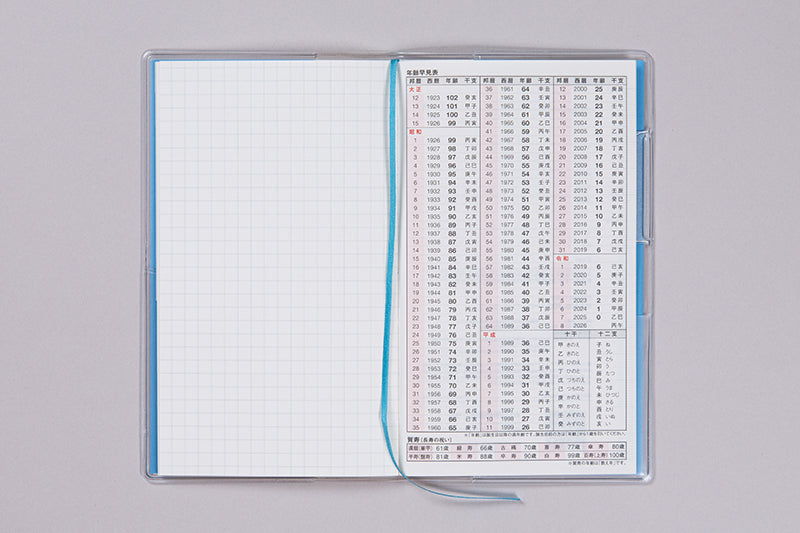 年齢早見表
邦暦 西暦 年齢 干支
大正
12 1923 102 癸亥
13 1924 101 甲子
14 1925 100 乙丑
15 1926 99 丙寅
昭和
1 1926 99 丙寅
2 1927 98 丁卯
3 1928 97 戊辰
4 1929 96 己巳
5 1930 95 庚午
6 1931 94 辛未
7 1932 93 壬申
8 1933 92 癸酉
9 1934 91 甲戌
10 1935 90 乙亥
11 1936 89 丙子
12 1937 88 丁丑
13 1938 87 戊寅
14 1939 86 己卯
15 1940 85 庚辰
16 1941 84 辛巳
17 1942 83 壬午
18 1943 82 癸未
19 1944 81 甲申
20 1945 80 乙酉
21 1946 79 丙戌
22 1947 78 丁亥
23 1948 77 戊子
24 1949 76 己丑
25 1950 75 庚寅
26 1951 74 辛卯
27 1952 73 壬辰
28 1953 72 癸巳
29 1954 71 甲午
30 1955 70 乙未
31 1956 69 丙申
32 1957 68 丁酉
33 1958 67 戊戌
34 1959 66 己亥
35 1960 65 庚子
邦暦 西暦 年齢 干支
36 1961 64 辛丑
37 1962 63 壬寅
38 1963 62 癸卯
39 1964 61 甲辰
40 1965 60 乙巳
41 1966 59 丙午
42 1967 58 丁未
43 1968 57 戊申
44 1969 56 己酉
45 1970 55 庚戌
46 1971 54 辛亥
47 1972 53 壬子
48 1973 52 癸丑
49 1974 51 甲寅
50 1975 50 乙卯
51 1976 49 丙辰
52 1977 48 丁巳
53 1978 47 戊午
54 1979 46 己未
55 1980 45 庚申
56 1981 44 辛酉
57 1982 43 壬戌
58 1983 42 癸亥
59 1984 41 甲子
60 1985 40 乙丑
61 1986 39 丙寅
62 1987 38 丁卯
63 1988 37 戊辰
64 1989 36 己巳
平成
1 1989 36 己巳
2 1990 35 庚午
3 1991 34 辛未
4 1992 33 壬申
5 1993 32 癸酉
6 1994 31 甲戌
7 1995 30 乙亥
8 1996 29 丙子
9 1997 28 丁丑
10 1998 27 戊寅
11 1999 26 己卯
邦暦 西暦 年齢 干支
12 2000 25 庚辰
13 2001 24 辛巳
14 2002 23 壬午
15 2003 22 癸未
16 2004 21 甲申
17 2005 20 乙酉
18 2006 19 丙戌
19 2007 18 丁亥
20 2008 17 戊子
21 2009 16 己丑
22 2010 15 庚寅
23 2011 14 辛卯
24 2012 13 壬辰
25 2013 12 癸巳
26 2014 11 甲午
27 2015 10 乙未
28 2016 9 丙申
29 2017 8 丁酉
30 2018 7 戊戌
31 2019 6 己亥
令和
1 2019 6 己亥
2 2020 5 庚子
3 2021 4 辛丑
4 2022 3 壬寅
5 2023 2 癸卯
6 2024 1 甲辰
7 2025 0 乙巳
8 2026 丙午
十干
甲 きのえ
乙 きのと
丙 ひのえ
丁 ひのと
戊 つちのえ
己 つちのと
庚 かのえ
辛 かのと
壬 みずのえ
癸 みずのと
十二支
子 ね
丑 うし
寅 とら
卯 う
辰 たつ
巳 み
午 うま
未 ひつじ
申 さる
酉 とり
戌 いぬ
亥 い
※「年齢」は誕生日以降の満年齢です。誕生日前の方は「年齢」から1歳を引いてください。
賀寿（長寿の祝い）
還暦(華甲) 61歳 緑寿 66歳 古稀 70歳 喜寿 77歳 傘寿 80歳
半寿(盤寿) 81歳 米寿 88歳 卒寿 90歳 白寿 99歳 百寿(上寿) 100歳
※賀寿の年齢は「数え年」です。